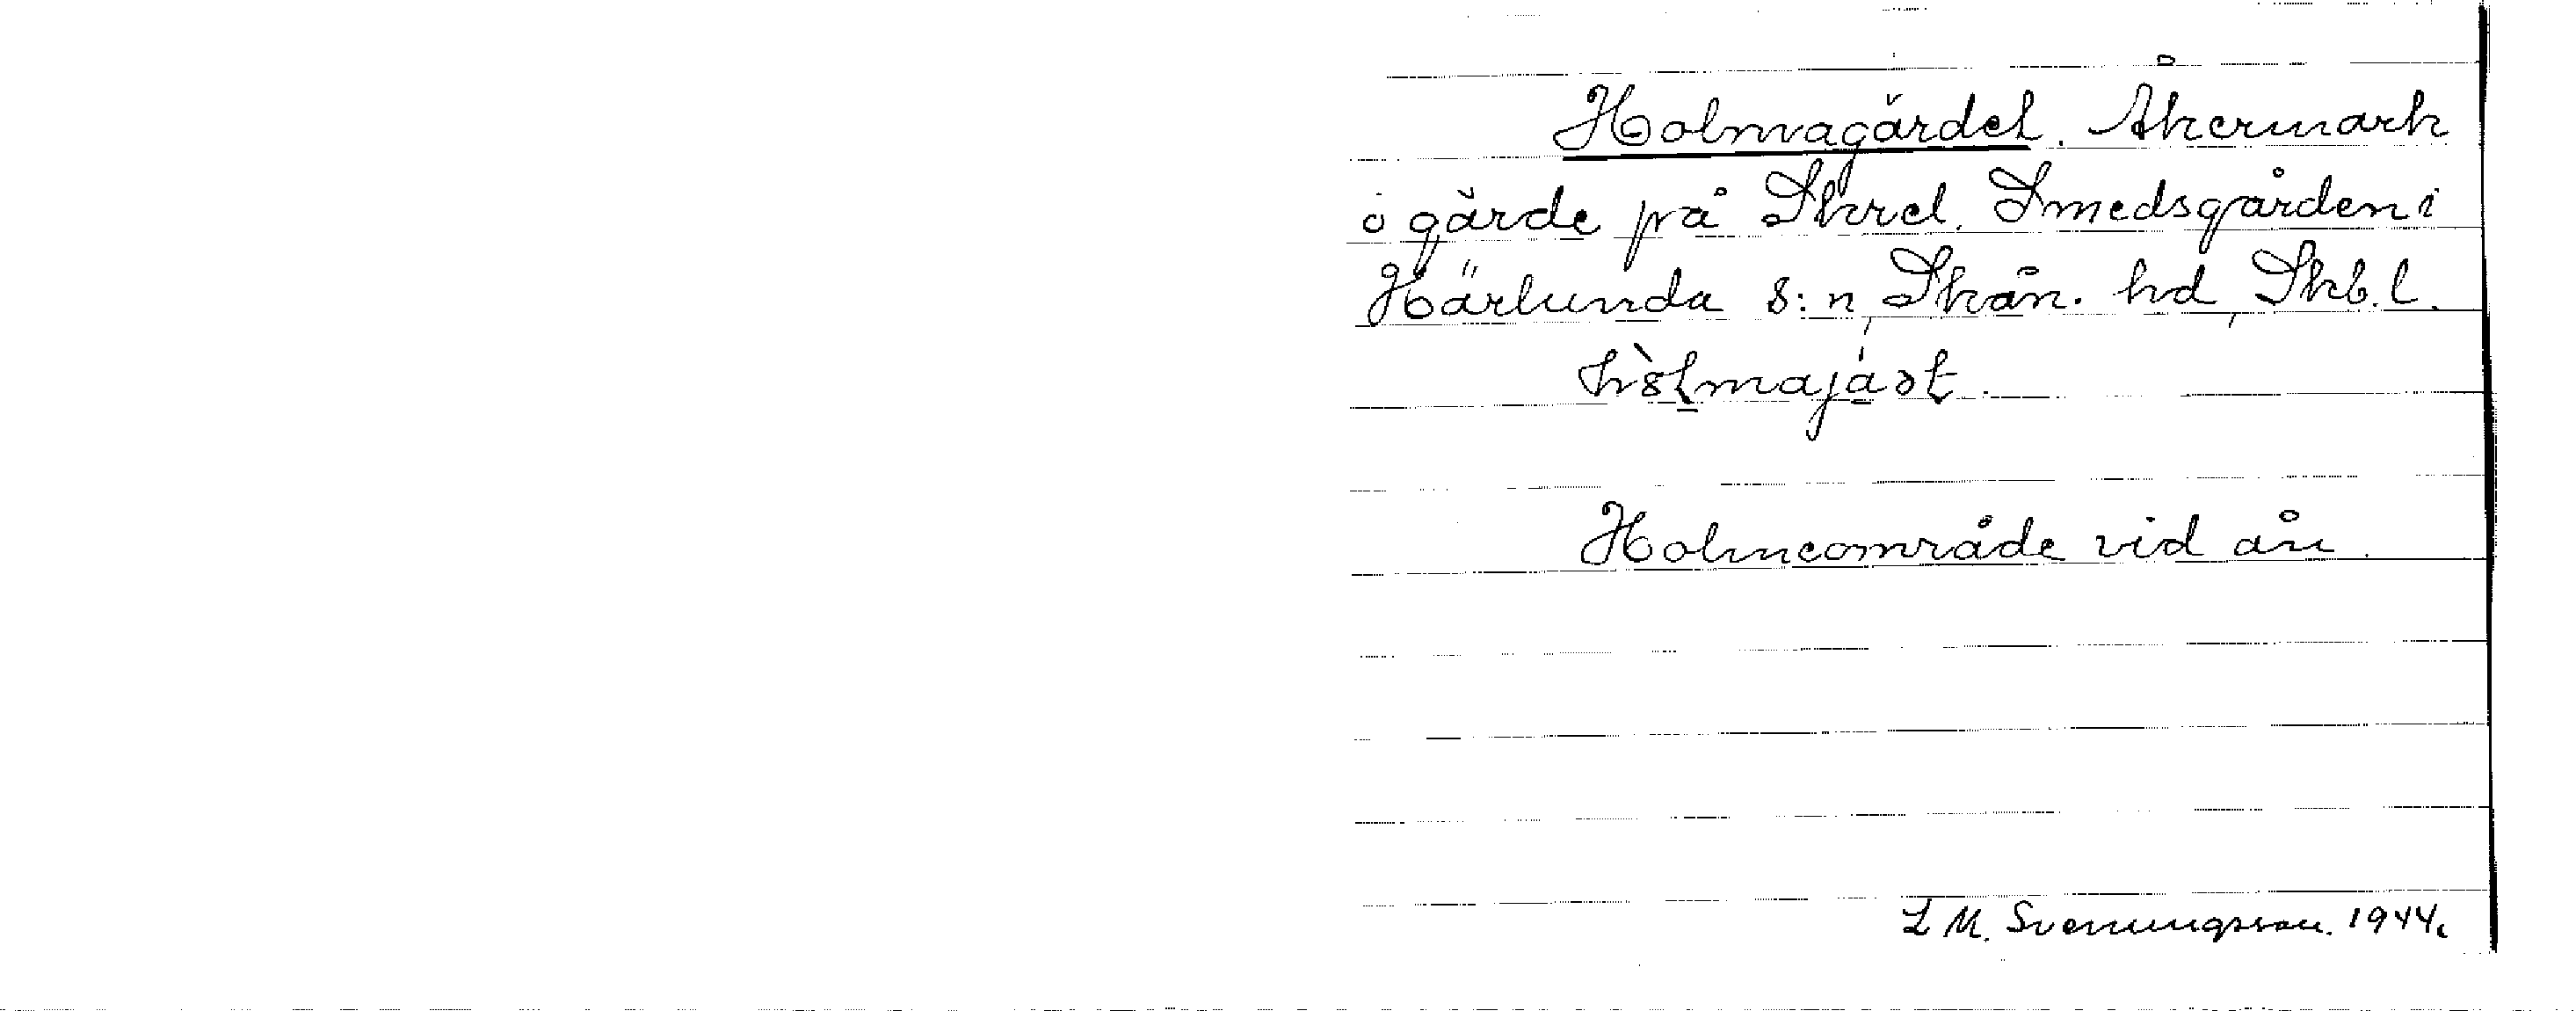 Holmagärdet. Åkermark
ö gärde på Skrel. Smedsgården i
Härlunda s:n, Skån. hd, Skb. l.
Holmeområde vid ån.
L M. Svenungsson. 1944.